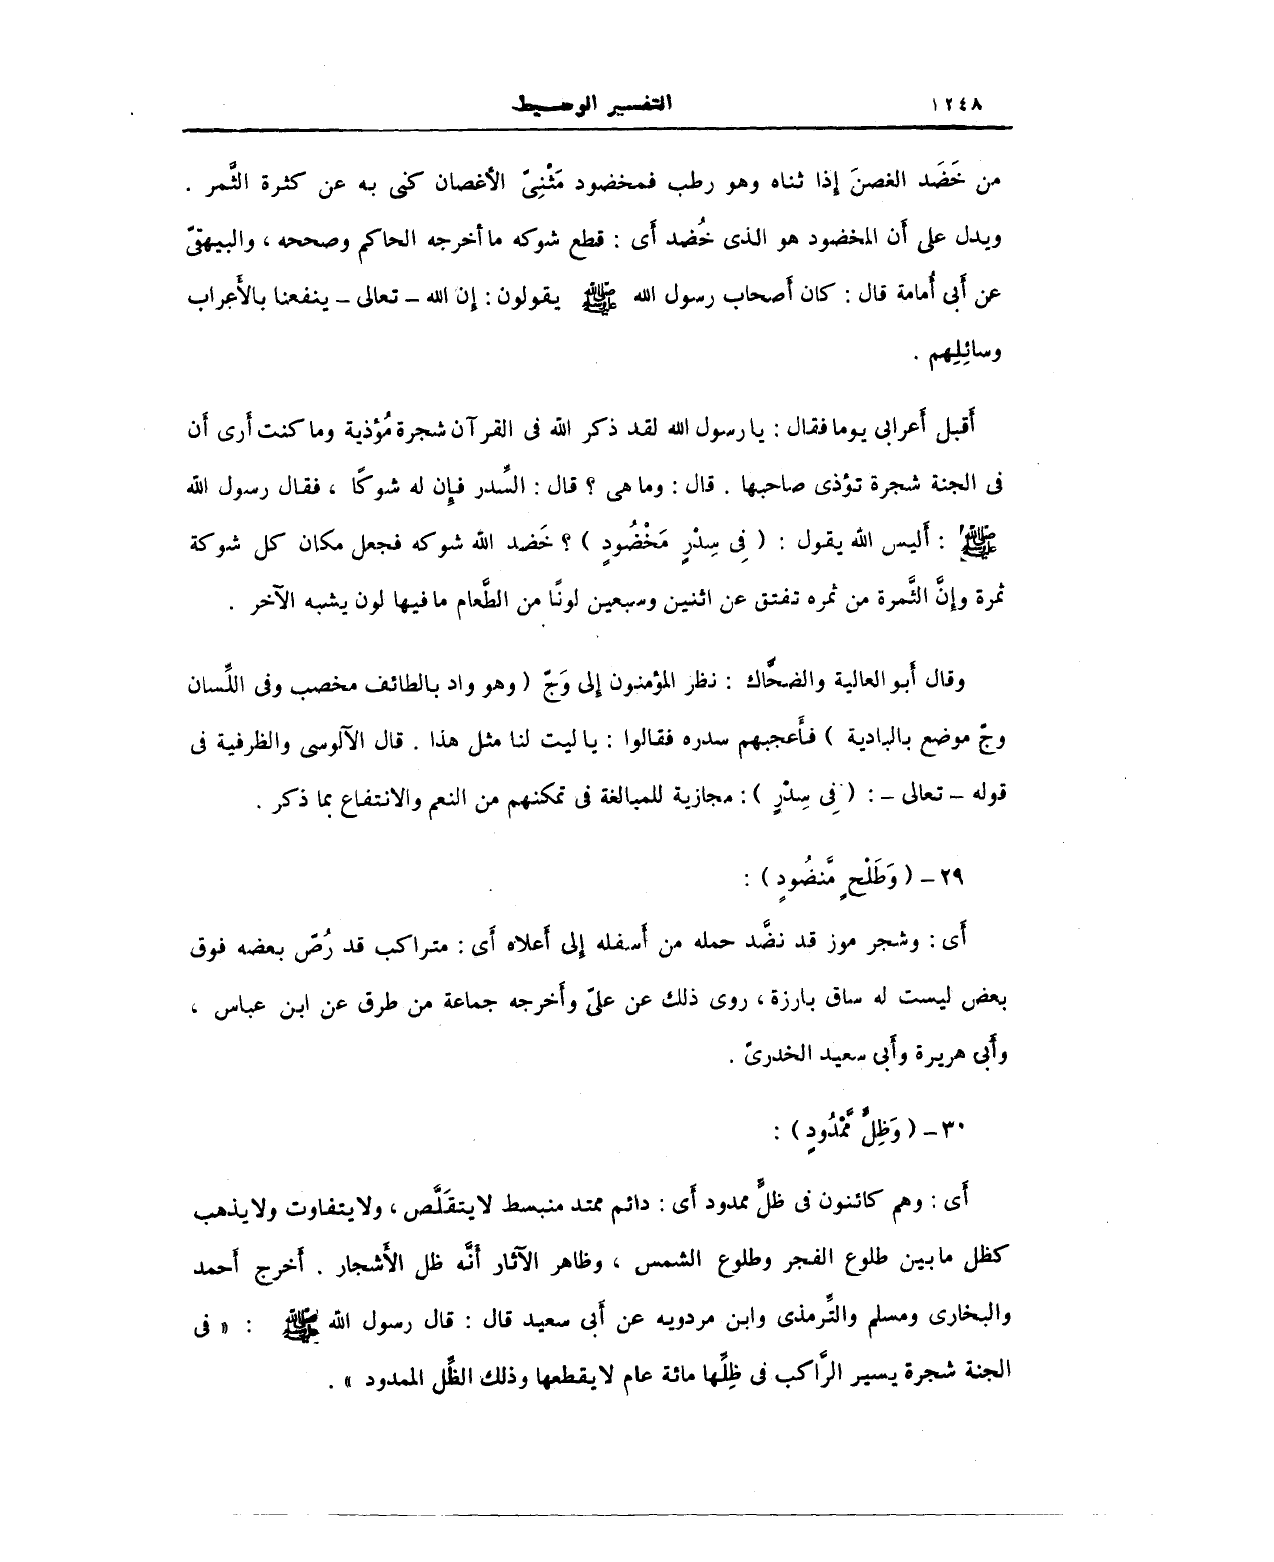 ١٢٤٨ التفسير الوسيط
من خَضَد الغصنَ إذا ثناه وهو رطب فمخضود مَثْنِىّ الأغصان كنى به عن كثرة الثَّمر .
ويدل على أن المخضود هو الذى خُضد أى : قطع شوكه ما أخرجه الحاكم وصححه ، والبيهقىّ
عن أبى أُمامة قال : كان أصحاب رسول الله ﷺ يقولون : إن الله ـ تعالى ـ ينفعنا بالأَعراب
وسائِلِهم .
أَقبل أَعرابى يوما فقال : يا رسول الله لقد ذكر الله فى القرآن شجرة مُؤذية وما كنت أرى أن
فى الجنة شجرة تؤذى صاحبها . قال : وما هى ؟ قال : السِّدر فإن له شوكًا ، فقال رسول الله
ﷺ : أَليس الله يقول : ( فِى سِدْرٍ مَخْضُودٍ ) ؟ خَضد الله شوكه فجعل مكان كل شوكة
ثمرة وإنَّ الثَّمرة من ثمره تفتق عن اثنين وسبعين لونًا من الطَّعام ما فيها لون يشبه الآخر .
وقال أَبو العالية والضحَّاك : نظر المؤمنون إلى وَجّ ( وهو واد بالطائف مخصب وفى اللِّسان
وجّ موضع بالبادية ) فأَعجبهم سدره فقالوا : يا ليت لنا مثل هذا . قال الآلوسى والظرفية فى
قوله ـ تعالى ـ : ( فِى سِدْرٍ ) : مجازية للمبالغة فى تمكنهم من النعم والانتفاع بما ذكر .
٢٩ ـ ( وَطَلْحٍ مَّنضُودٍ ) :
أَى : وشجر موز قد نضَّد حمله من أَسفله إلى أَعلاه أَى : متراكب قد رُصّ بعضه فوق
بعض ليست له ساق بارزة ، روى ذلك عن علىّ وأَخرجه جماعة من طرق عن ابن عباس ،
وأَبى هريرة وأَبى سعيد الخدرىّ .
٣٠ ـ ( وَظِلٍّ مَّمْدُودٍ ) :
أَى : وهم كائنون فى ظلٍّ ممدود أَى : دائم ممتد منبسط لا يتقَلَّص ، ولا يتفاوت ولا يذهب
كظل ما بين طلوع الفجر وطلوع الشمس ، وظاهر الآثار أَنَّه ظل الأَشجار . أَخرج أَحمد
والبخارى ومسلم والتِّرمذى وابن مردويه عن أَبى سعيد قال : قال رسول الله ﷺ : « فى
الجنة شجرة يسير الرَّاكب فى ظِلِّها مائة عام لا يقطعها وذلك الظِّل الممدود » .